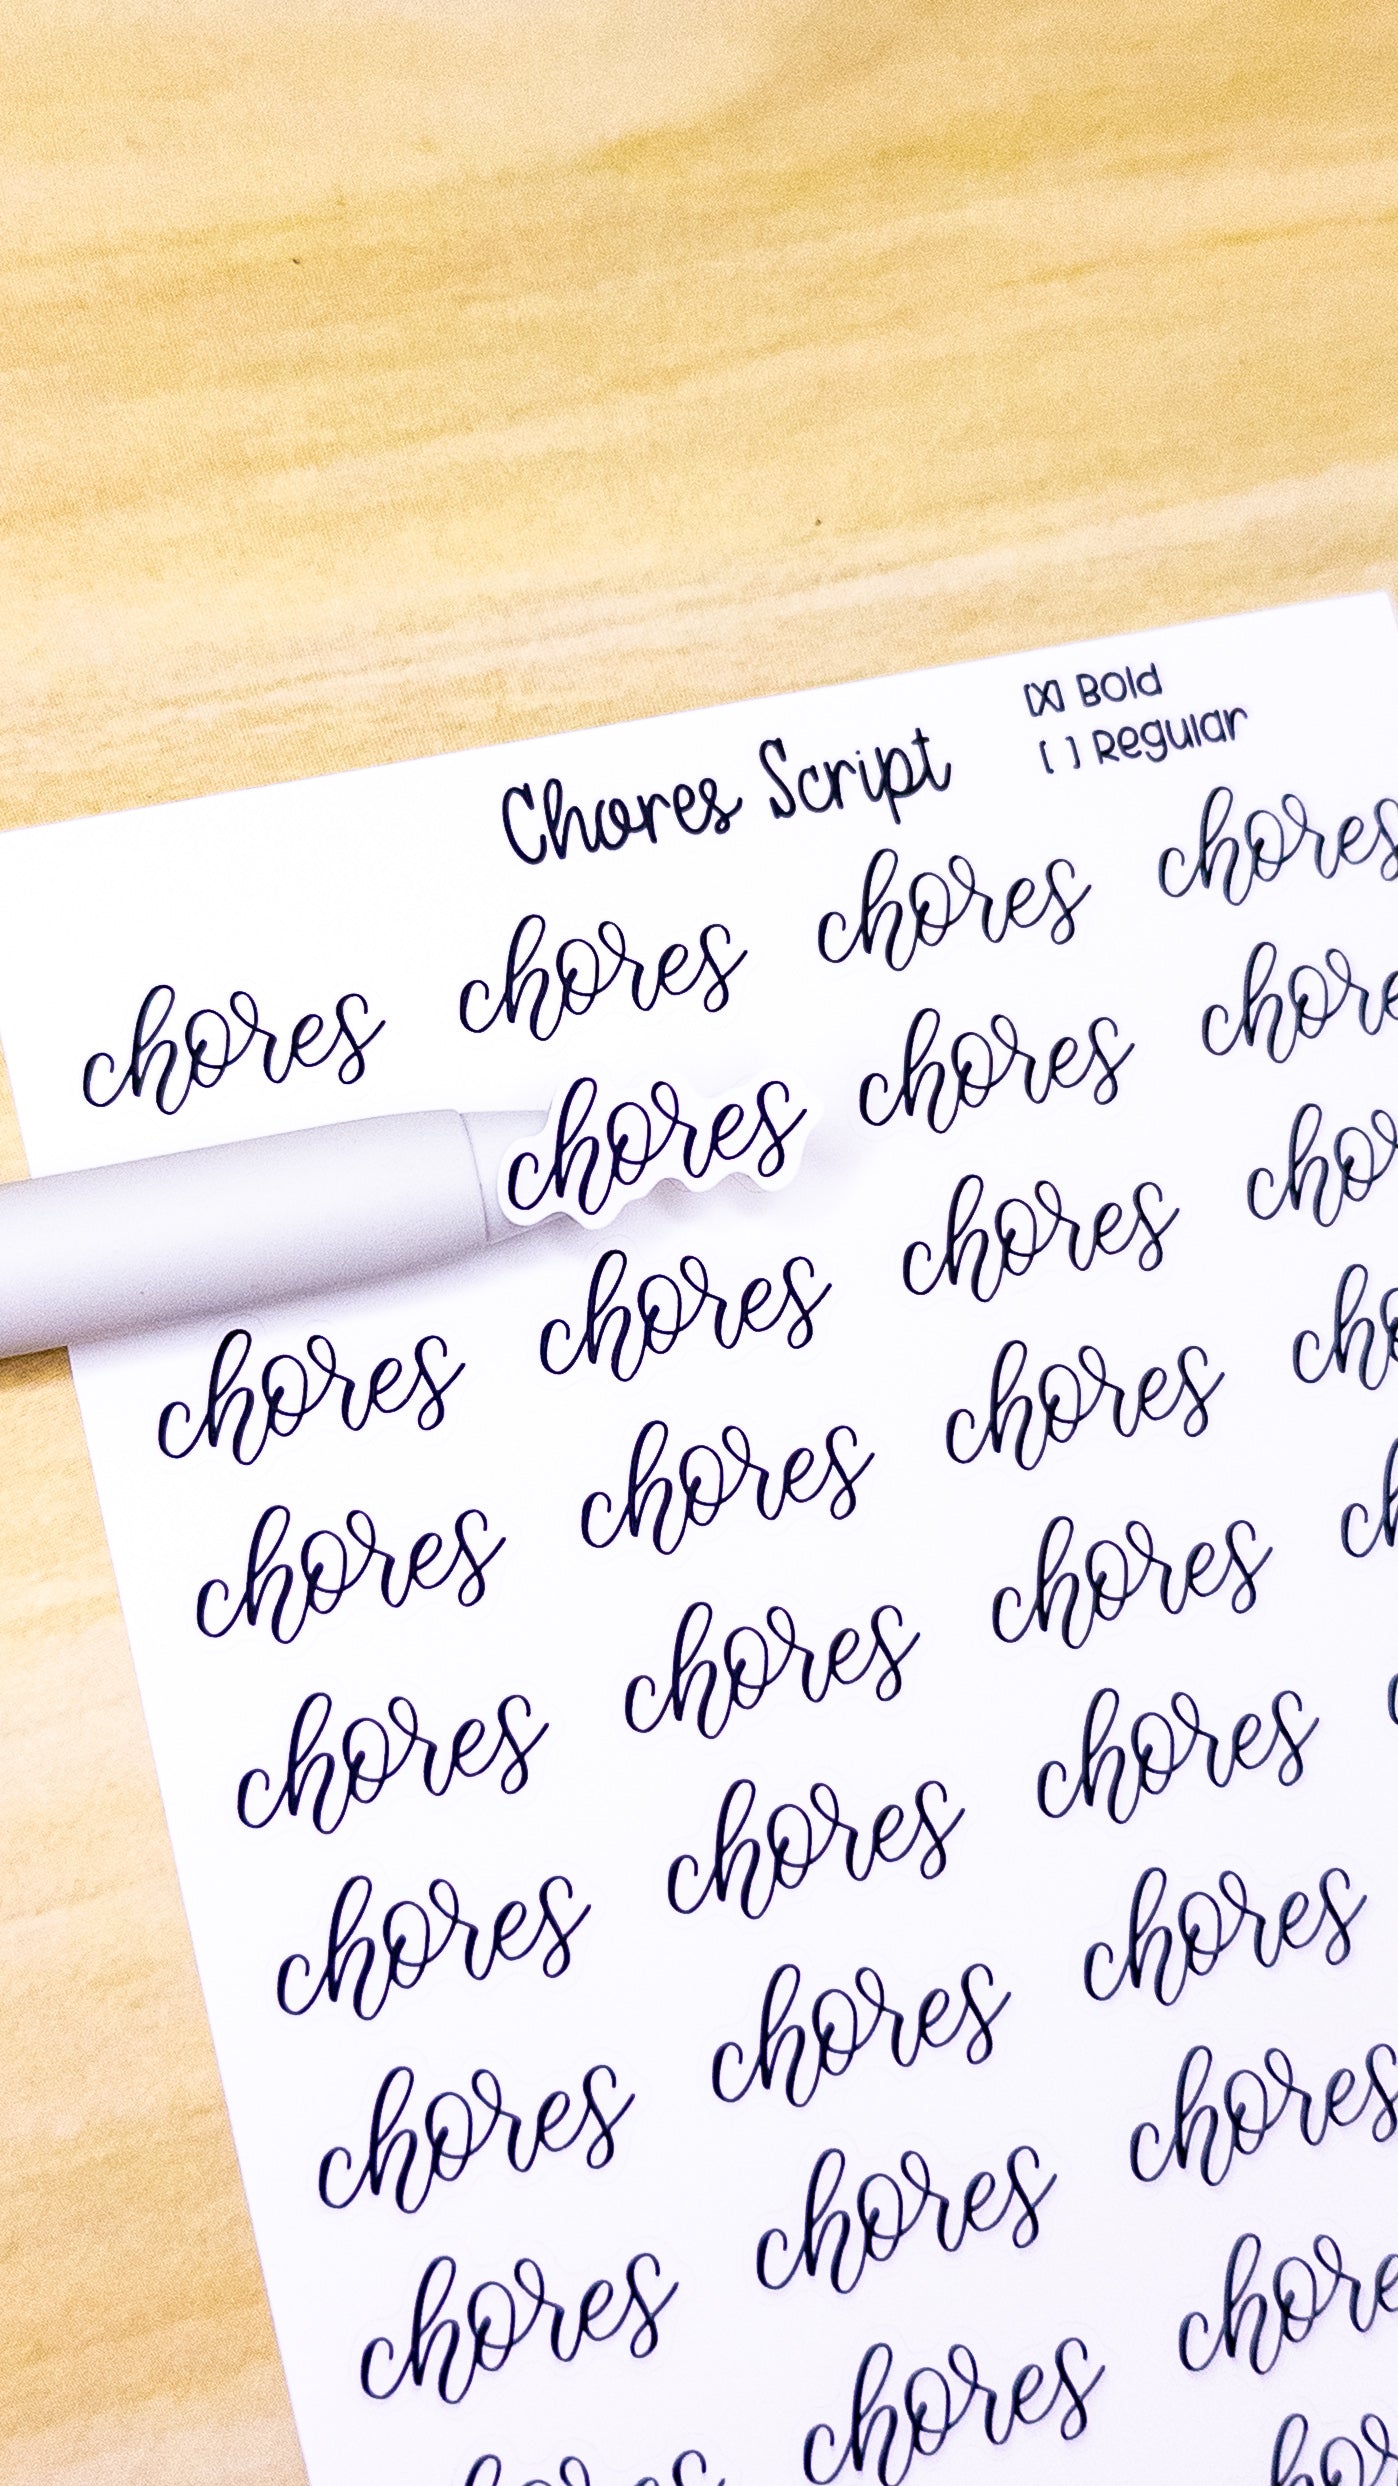 Chores Script
[X] Bold
[ ] Regular
chores chores chores chores
chores chores chore
chores chores chores chor
chores chores chores cho
chores chores chores ch
chores chores chores
chores chores chores
chores chores chores
chores chore